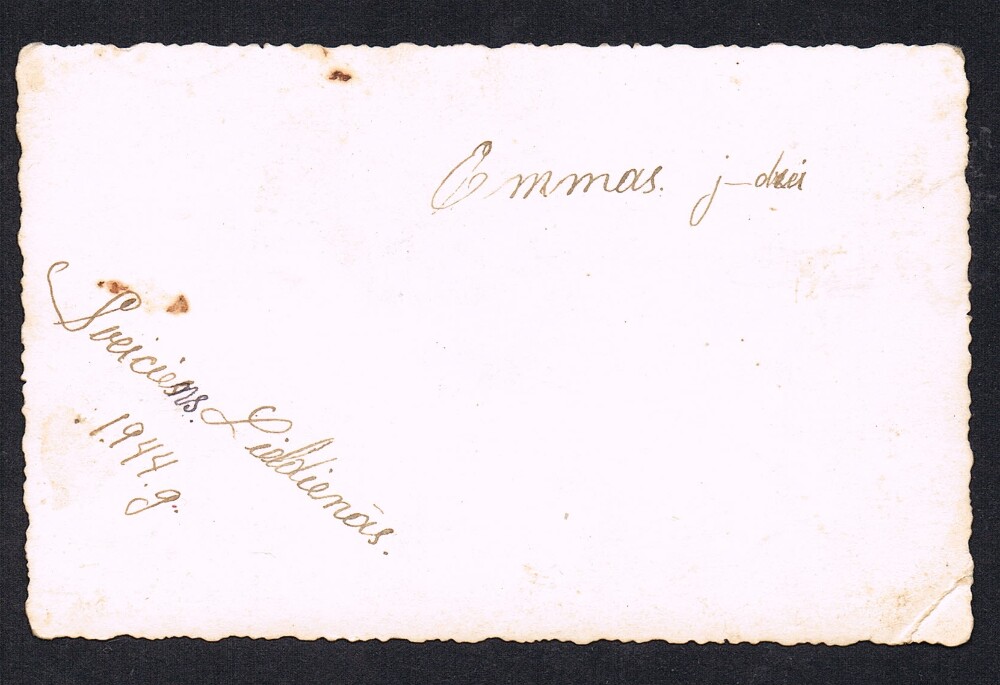 Emmas. j-dzei
Sveiciens. Lieldienās.
1944.g.